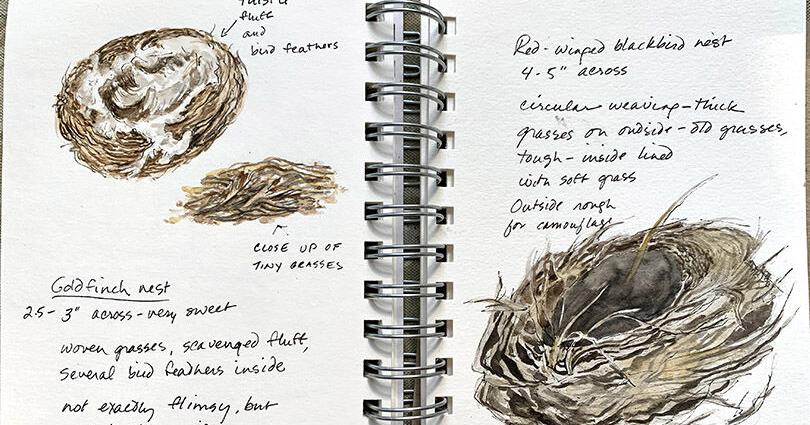 fluff
and
bird feathers
CLOSE UP OF
TINY GRASSES
Goldfinch nest
2.5 - 3" across - very sweet
woven grasses, scavenged fluff,
several bird feathers inside
not exactly flimsy, but
Red-winged blackbird nest
4-5" across
circular weaving - thick
grasses on outside - old grasses,
tough - inside lined
with soft grass
Outside rough
for camouflage